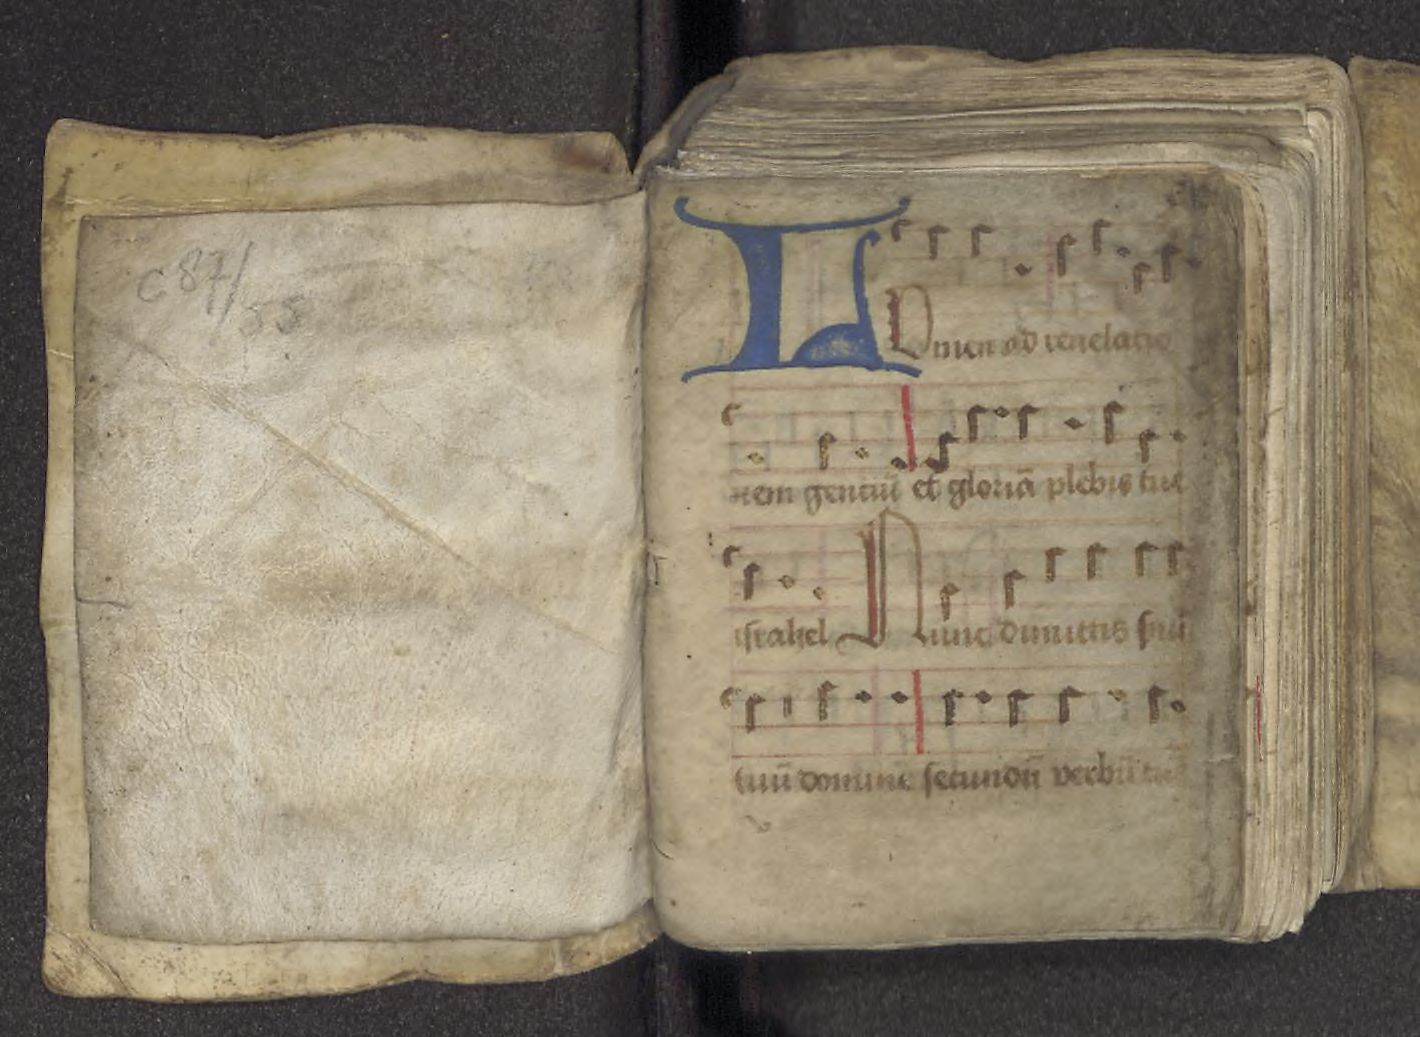 c 87/
55
LUmen ad reuelatio
nem gentiū et gloriā plebis tue
israhel Nunc dimittis seruū
tuū domine secundū verbū tuū